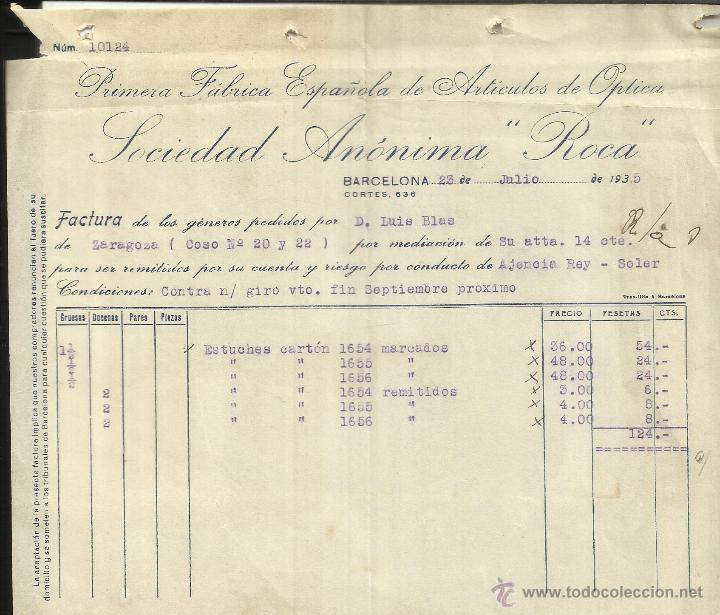 Núm. 10124
Primera Fábrica Española de Artículos de Optica
Sociedad Anónima "Roca"
BARCELONA 23 de Julio de 1935
CORTES, 636
Factura de los géneros pedidos por D. Luis Blas
de Zaragoza ( Coso Nº 20 y 22 ) por mediación de Su atta. 14 cte.
para ser remitidos por su cuenta y riesgo por conducto de Ajencia Rey - Soler
Condiciones: Contra n/ giro vto. fin Septiembre proximo
Gruesas Docenas Pares Piezas PRECIO PESETAS CTS.
1 1/2 Estuches cartón 1654 marcados x 36.00 54.-
1/2 " " 1655 " x 48.00 24.-
1/2 " " 1656 " x 48.00 24.-
2 " " 1654 remitidos x 3.00 6.-
2 " " 1655 " x 4.00 8.-
2 " " 1656 " x 4.00 8.-
124.-
==========
La aceptación de la presente factura implica que nuestros compradores renuncian al fuero de su
domicilio y se someten a los tribunales de Barcelona para cualquier cuestión que se pudiera suscitar.
tc www.todocoleccion.net